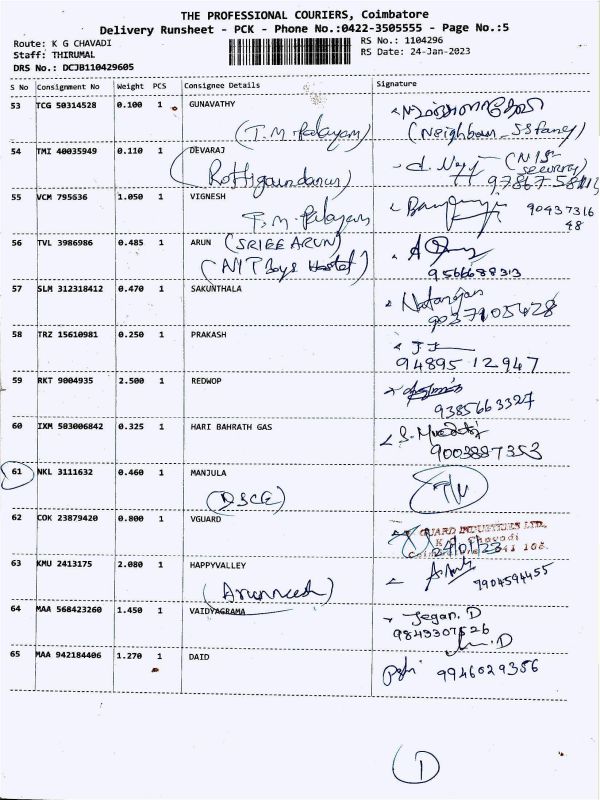 THE PROFESSIONAL COURIERS, Coimbatore
Delivery Runsheet - PCK - Phone No.:0422-3505555 - Page No.:5
Route: K G CHAVADI
RS No.: 1104296
Staff: THIRUMAL
RS Date: 24-Jan-2023
DRS No.: DCJB110429605
S No Consignment No Weight PCS Consignee Details Signature
53 TCG 50314528 0.100 1 GUNAVATHY
(T.M. Palayam) (Neighbour
54 TMI 40035949 0.110 1 DEVARAJ
(Rottigoundanur) security)
55 VCM 795636 1.050 1 VIGNESH
T.M. Palayam 90437316
48
56 TVL 3986986 0.485 1 ARUN (SRIEE ARUN)
(NIT Boys Hostel) 9566688313
57 SLM 312318412 0.470 1 SAKUNTHALA Natarajan
9037105428
58 TRZ 15610981 0.250 1 PRAKASH
94895 12947
59 RKT 9004935 2.500 1 REDWOP
9385663327
60 IXM 503006842 0.325 1 HARI BAHRATH GAS
9003887353
61 NKL 3111632 0.460 1 MANJULA
(DSCE)
62 COK 23879420 0.800 1 VGUARD
GUARD INDUSTRIES LTD.,
24/01/23
63 KMU 2413175 2.080 1 HAPPYVALLEY
9904594455
64 MAA 568423260 1.450 1 VAIDYAGRAMA Jegan. D
9843307526
65 MAA 942184406 1.270 1 DAID
9946029356
1